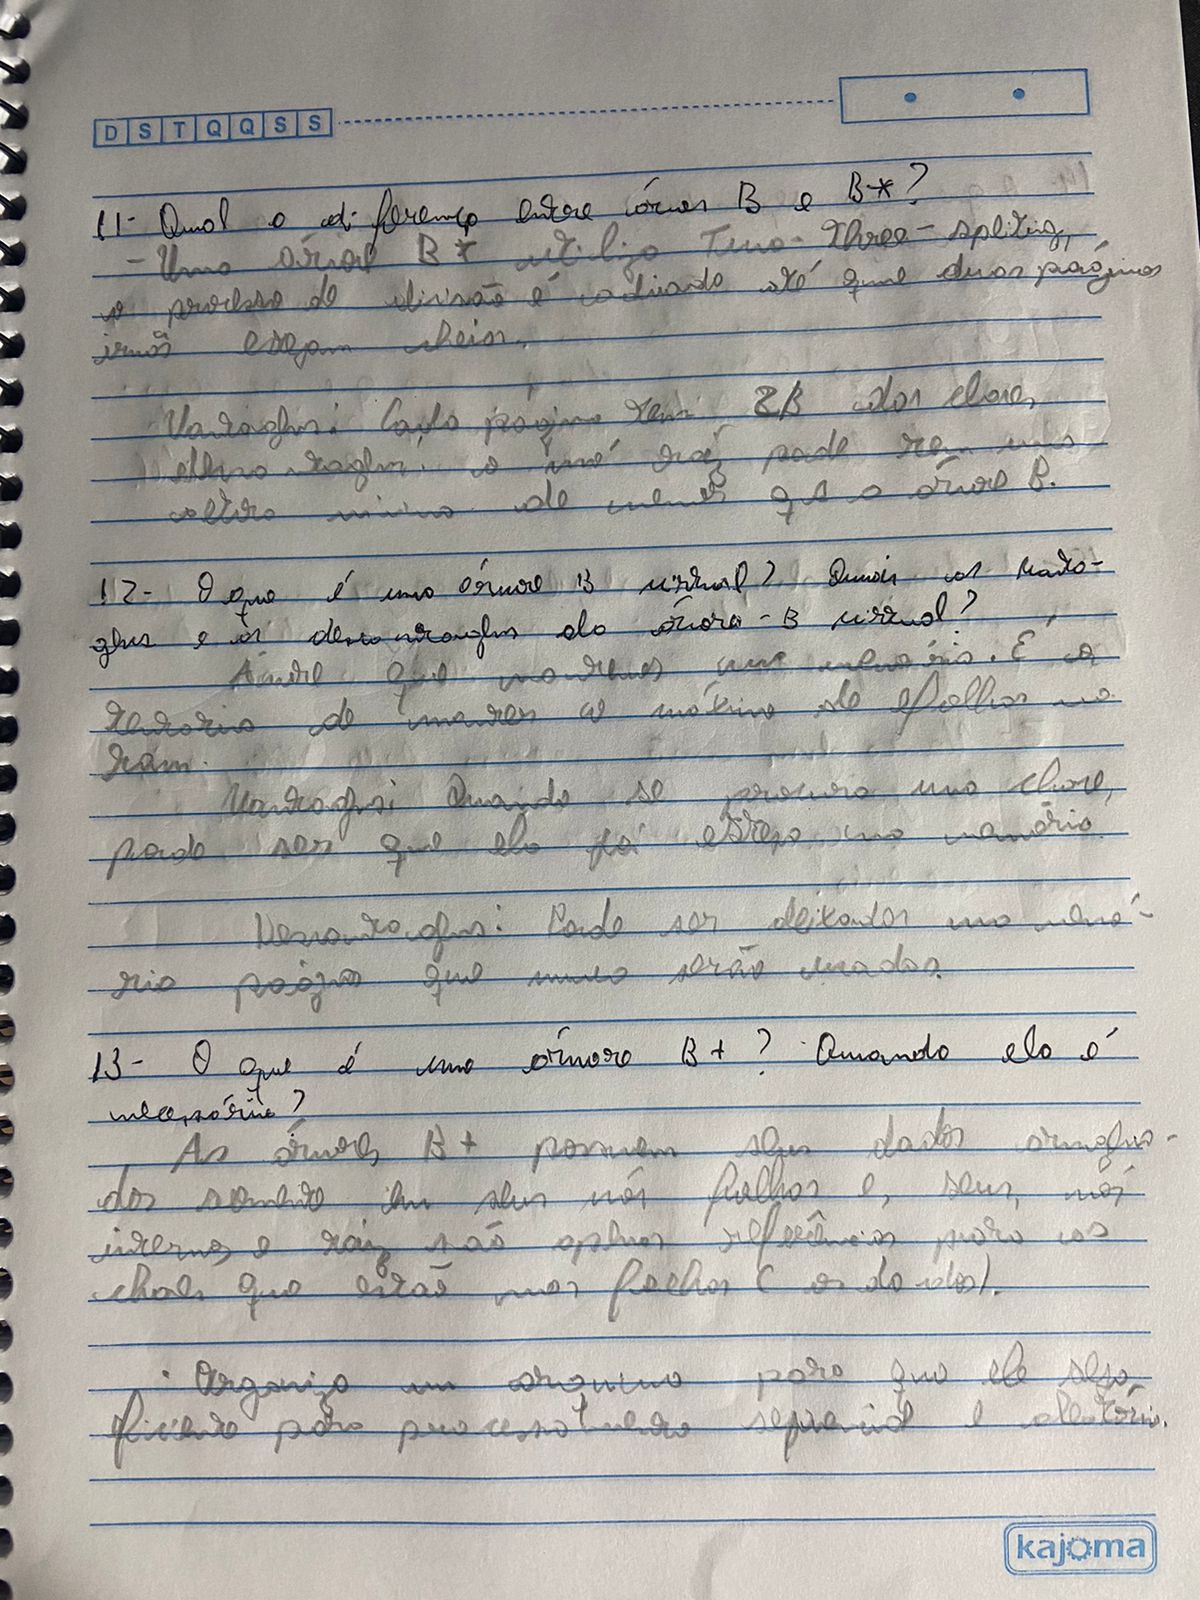 D S T Q Q S S
11- Qual a diferença entre árvores B e B*?
- Uma árvore B* utiliza Two-Three-spliting,
o processo de divisão é adiado até que duas páginas
irmãs estejam cheias.
Vantagens: Cada página tem 2/3 das chaves,
desvantagens: a raiz pode ter um
de menos que a árvore B.
12- O que é uma árvore B virtual? Quais as vanta-
gens e as desvantagens da árvore-B virtual?
Árvore que mantemos na memória. É a
de manter o máximo de folhas na
ram.
Vantagens: Quando se procura uma chave,
pode ser que ela já esteja na memória.
Desvantagens: Pode ser deixadas na memó-
ria páginas que nunca serão usadas.
13- O que é uma árvore B+? Quando ela é
necessária?
As árvores B+ possuem seus dados armazena-
dos somente em seus nós folhas e, seus, nós
internos e raiz são apenas referências para as
chaves que estão nas folhas (os dados).
Organiza um arquivo para que ele seja
ficiente para processamento sequencial e aleatório.
kajoma